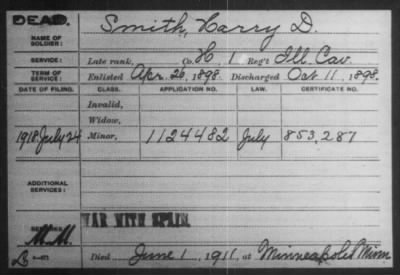 DEAD.
NAME OF SOLDIER: Smith, Harry D.
SERVICE: Late rank, Co. H, 1 Reg't Ill. Cav.
TERM OF SERVICE: Enlisted Apr. 26, 1898. Discharged Oct. 11, 1898.
DATE OF FILING. CLASS. APPLICATION NO. LAW. CERTIFICATE NO.
Invalid,
Widow,
1918 July 24 Minor, 1124482 July 853,287
ADDITIONAL SERVICES:
WAR WITH SPAIN.
REMARKS:
M.M.
Died June 1, 1911, at Minneapolis Minn